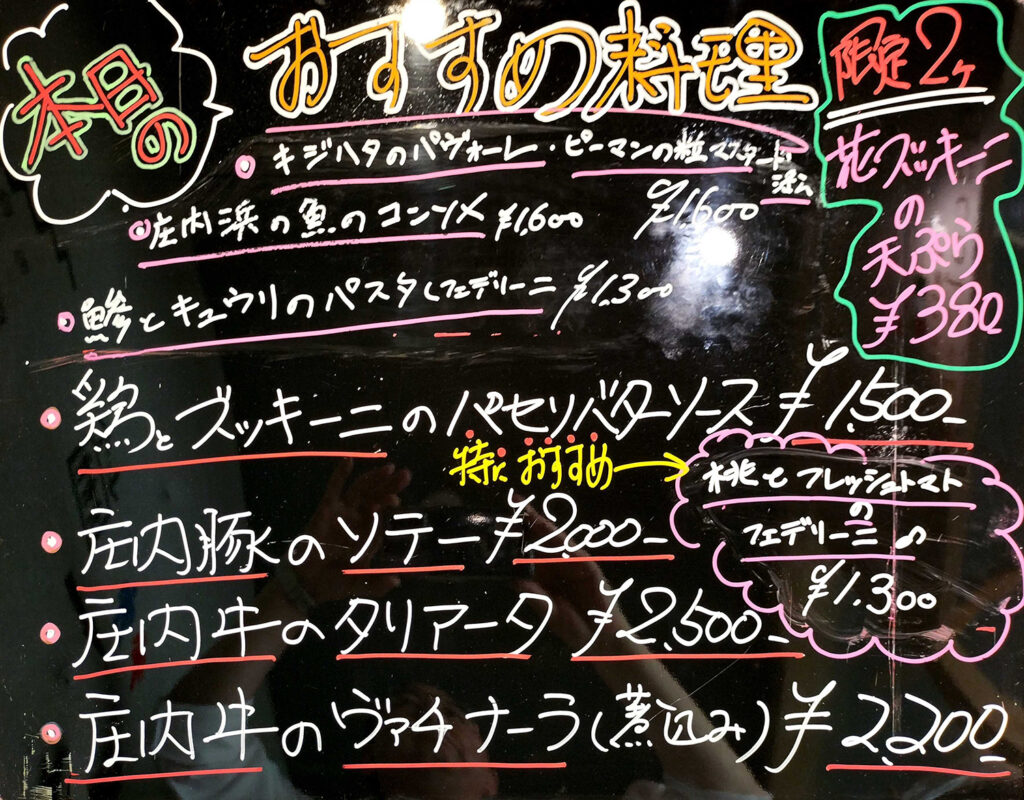 本日の
おすすめ料理
限定2ヶ
花ズッキーニ
の
天ぷら
¥380
・キジハタのパヴォーレ・ピーマンの粒マスタード
添え
¥1,600
・庄内浜の魚のコンソメ ¥1,600
・鰺とキュウリのパスタ フェデリーニ ¥1,300
・鶏とズッキーニのパセリバターソース ¥1,500-
特に おすすめ→
桃とフレッシュトマト
の
フェデリーニの
¥1,300
・庄内豚のソテー ¥2,000-
・庄内牛のタリアータ ¥2,500-
・庄内牛のヴァチナーラ(煮込み) ¥2,200